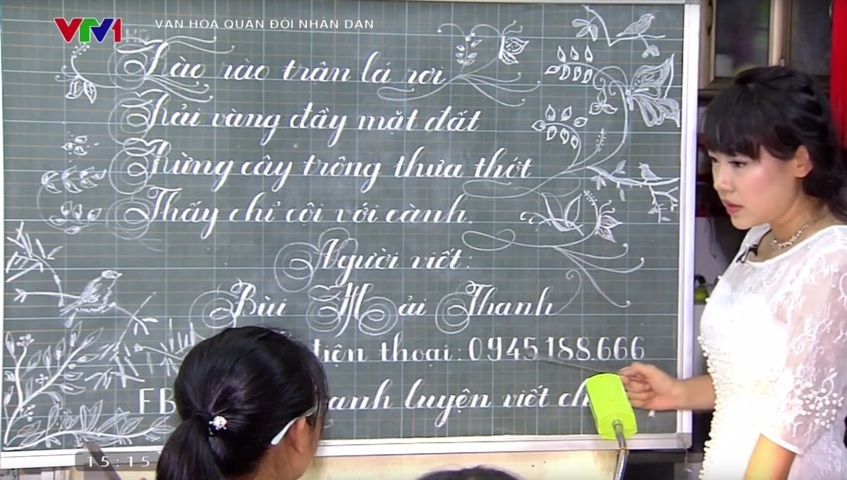 VTV1 HD VĂN HÓA QUÂN ĐỘI NHÂN DÂN
Lào rào trận lá rơi
Trải vàng đầy mặt đất
Rừng cây trông thưa thớt
Thấy chỉ cội với cành.
Người viết:
Bùi Hải Thanh
iện thoại: 0945.188.666
FB anh luyện viết ch
15:15